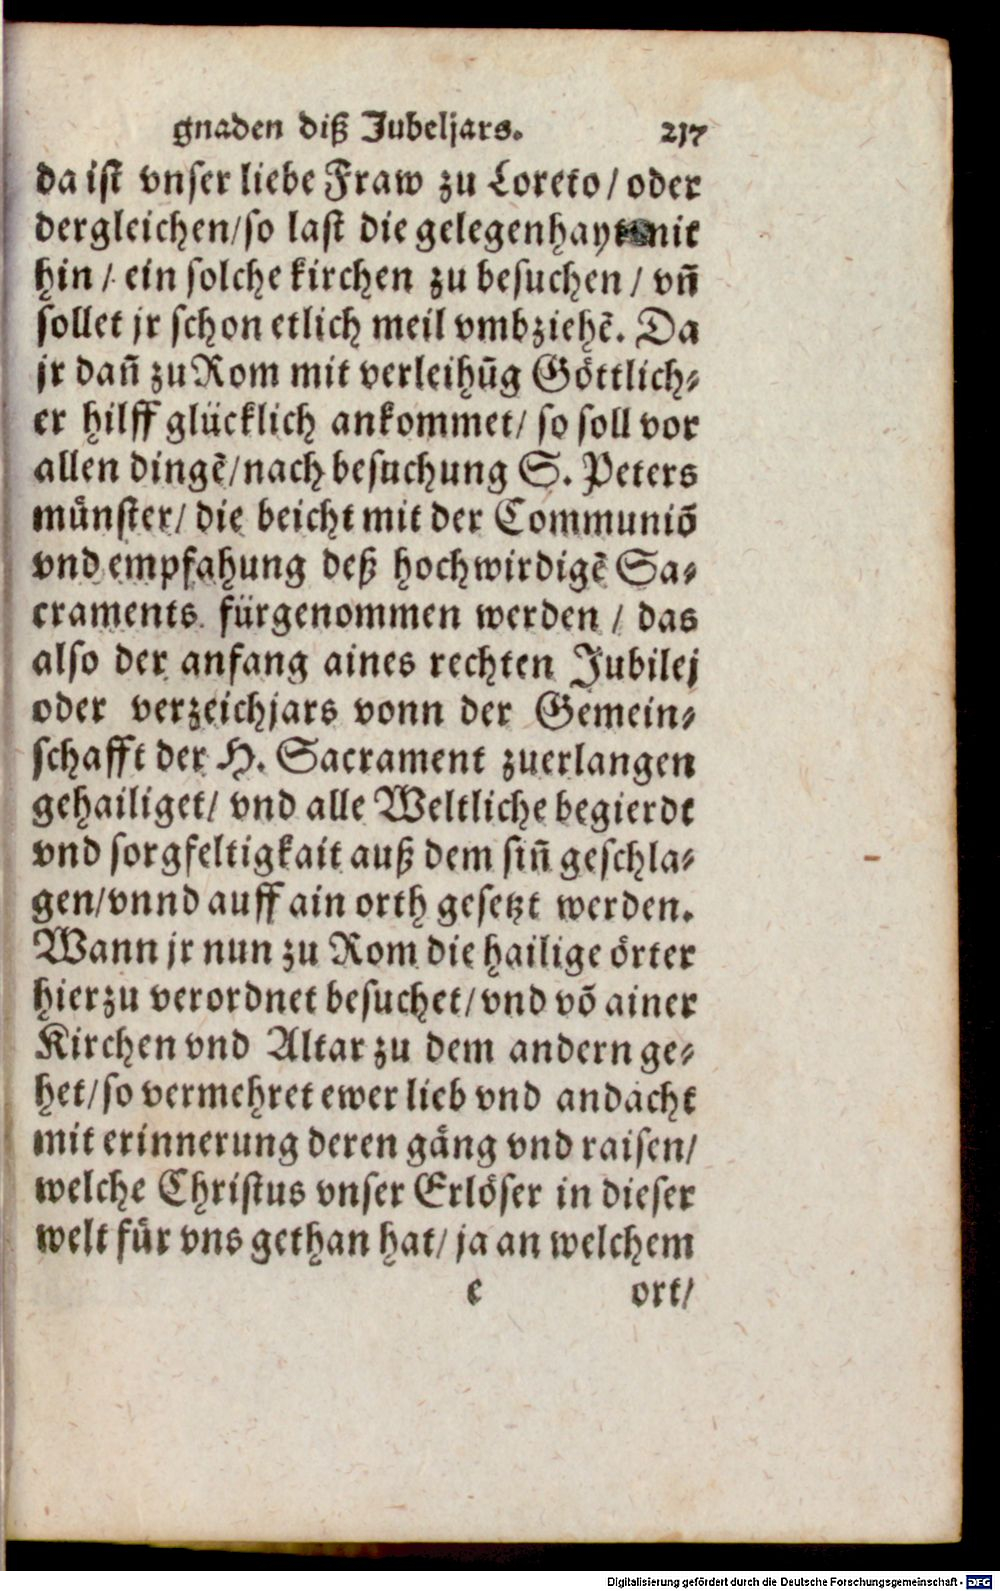 gnaden diß Jubeljars. 217
da ist vnser liebe Fraw zu Loreto / oder
dergleichen/so last die gelegenhayt nit
hin / ein solche kirchen zu besuchen / vñ
sollet jr schon etlich meil vmbziehẽ. Da
jr dañ zu Rom mit verleihũg Göttlich⸗
er hilff glücklich ankommet/ so soll vor
allen dingẽ/nach besuchung S. Peters
münster/ die beicht mit der Communiõ
vnd empfahung deß hochwirdigẽ Sa⸗
craments fürgenommen werden / das
also der anfang aines rechten Jubilej
oder verzeichjars vonn der Gemein⸗
schafft der H. Sacrament zuerlangen
gehailiget/ vnd alle Weltliche begierde
vnd sorgfeltigkait auß dem siñ geschla⸗
gen/vnnd auff ain orth gesetzt werden.
Wann jr nun zu Rom die hailige örter
hierzu verordnet besuchet/ vnd võ ainer
Kirchen vnd Altar zu dem andern ge⸗
het/so vermehret ewer lieb vnd andacht
mit erinnerung deren gäng vnd raisen/
welche Christus vnser Erlöser in dieser
welt für vns gethan hat/ ja an welchem
e ort/
Digitalisierung gefördert durch die Deutsche Forschungsgemeinschaft - DFG